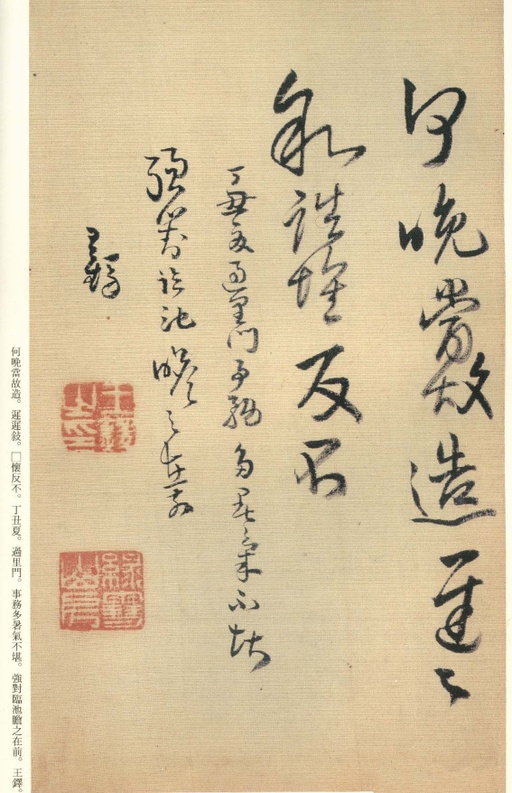 何晚當故造遲〻
敍誰懷反不
丁丑夏過里門事務多暑氣不堪
強對臨池瞻之在前
王鐸
王鐸之印
何晚當故造。遲遲敍。□懷反不。丁丑夏。過里門。事務多暑氣不堪。強對臨池瞻之在前。王鐸。